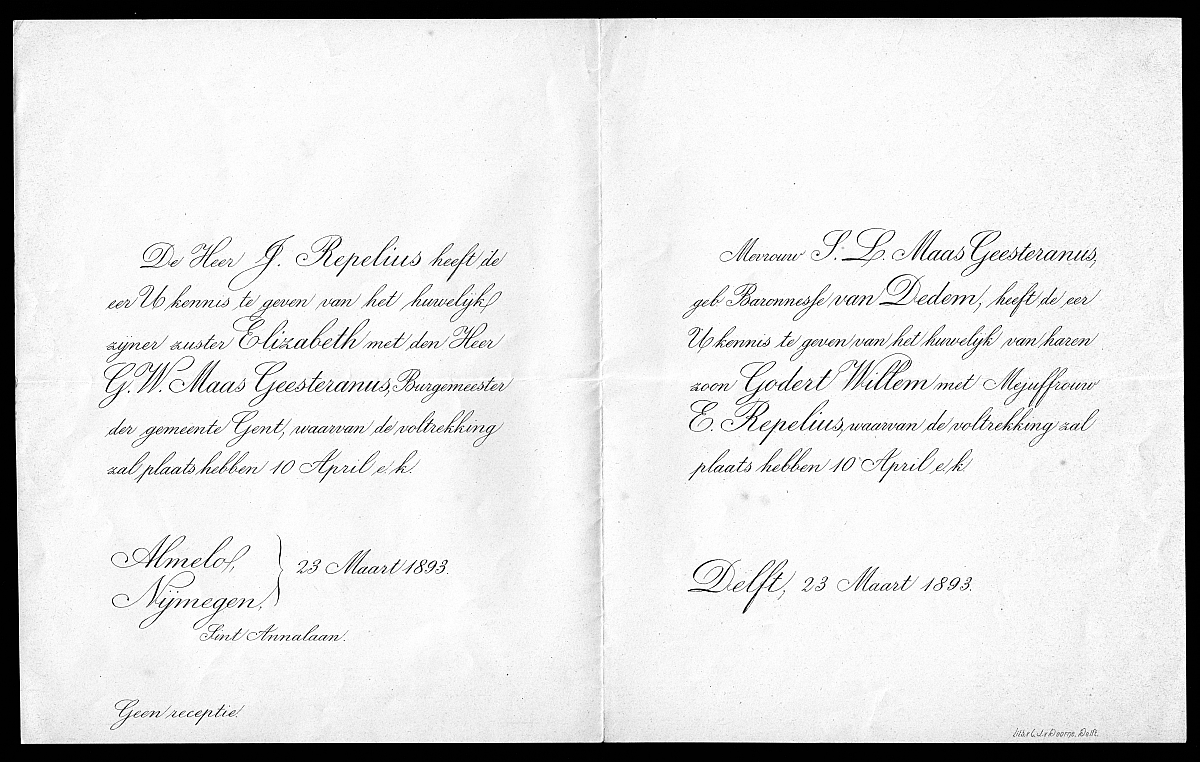 De Heer J. Repelius heeft de
eer U kennis te geven van het huwelijk
zijner zuster Elizabeth met den Heer
G. W. Maas Geesteranus, Burgemeester
der gemeente Gent, waarvan de voltrekking
zal plaats hebben 10 April e.k.
Almelo, } 23 Maart 1893.
Nijmegen,
Sint Annalaan.
Geen receptie
Mevrouw S. L. Maas Geesteranus,
geb Baronnesse van Dedem, heeft de eer
U kennis te geven van het huwelijk van haren
zoon Godert Willem met Mejuffrouw
E. Repelius, waarvan de voltrekking zal
plaats hebben 10 April e.k
Delft, 23 Maart 1893.
Delft.